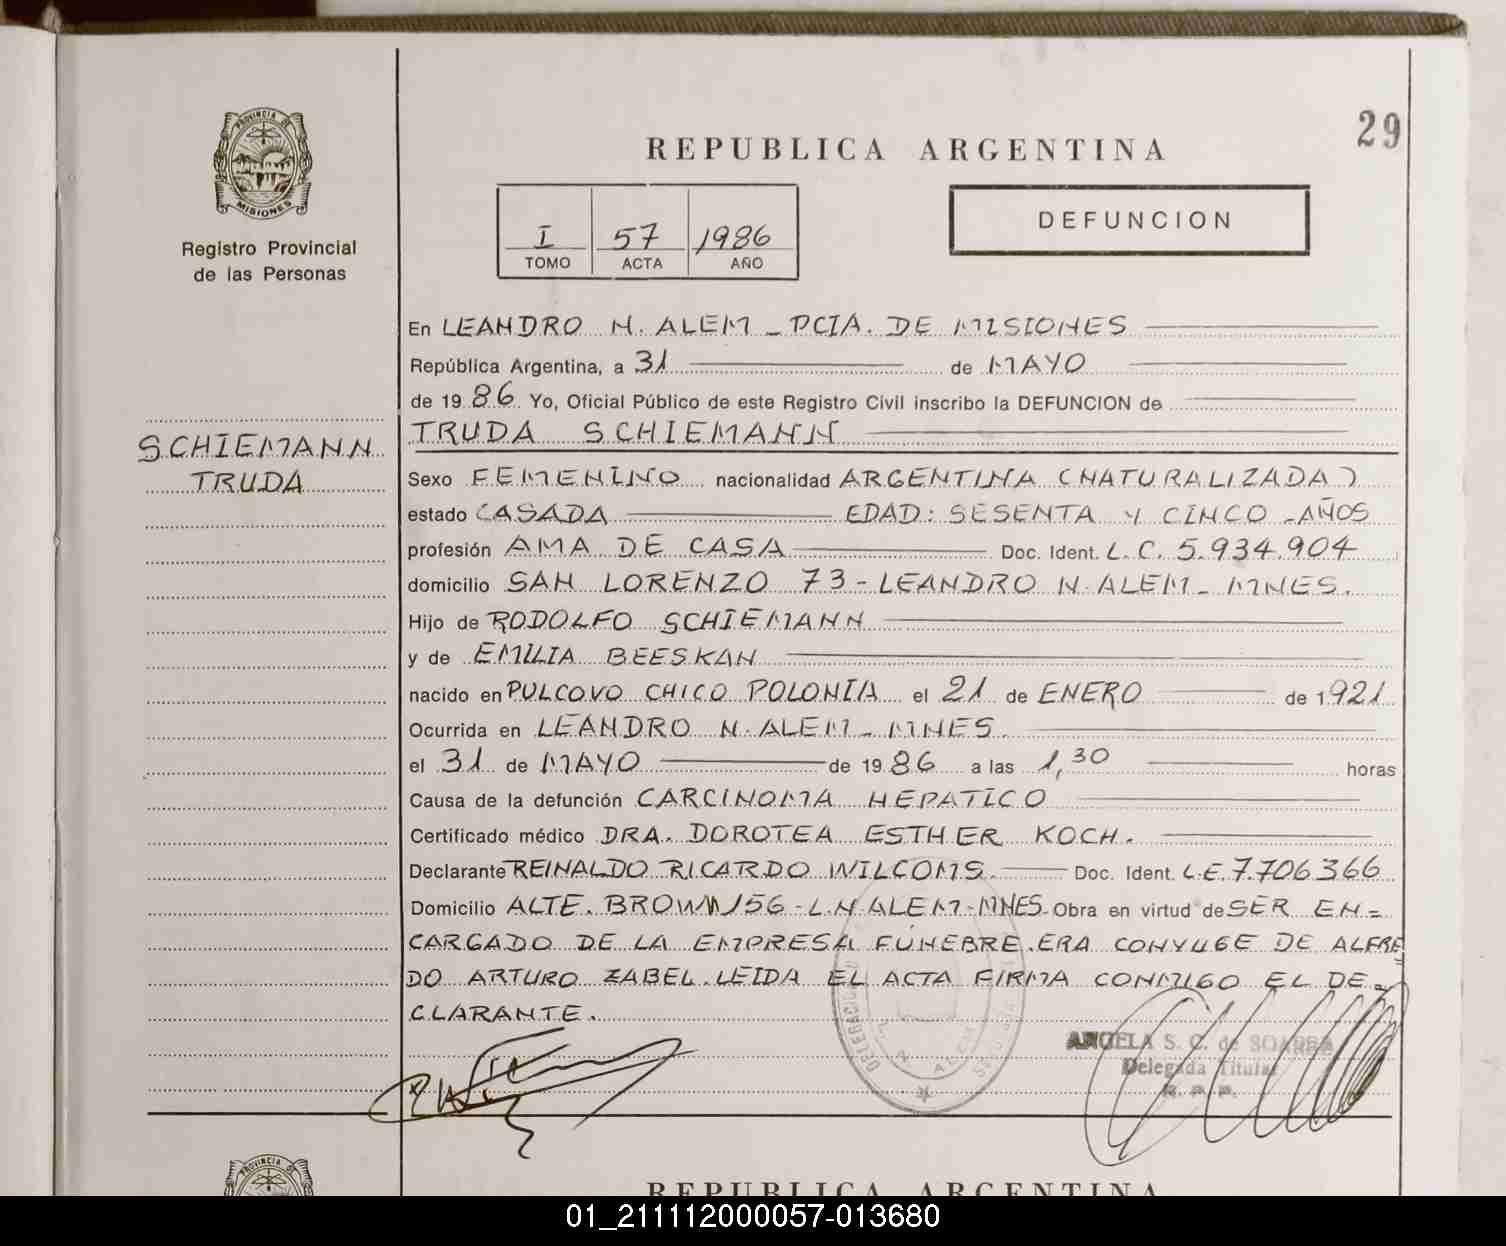 29
PROVINCIA DE
MISIONES
Registro Provincial
de las Personas
REPUBLICA ARGENTINA
I 57 1986
TOMO ACTA AÑO
DEFUNCION
SCHIEMANN
TRUDA
En LEANDRO N. ALEM - PCIA. DE MISIONES
República Argentina, a 31 de MAYO
de 1986 Yo, Oficial Público de este Registro Civil inscribo la DEFUNCION de
TRUDA SCHIEMANN
Sexo FEMENINO nacionalidad ARGENTINA (NATURALIZADA)
estado CASADA EDAD: SESENTA Y CINCO - AÑOS
profesión AMA DE CASA Doc. Ident. L.C. 5.934.904
domicilio SAN LORENZO 73 - LEANDRO N. ALEM - MNES.
Hijo de RODOLFO SCHIEMANN
y de EMILIA BEESKAN
nacido en PULCOVO CHICO POLONIA el 21 de ENERO de 1921
Ocurrida en LEANDRO N. ALEM - MNES.
el 31 de MAYO de 1986 a las 1,30 horas
Causa de la defunción CARCINOMA HEPATICO
Certificado médico DRA. DOROTEA ESTHER KOCH.
Declarante REINALDO RICARDO WILCOMS. Doc. Ident. L.E. 7.706366
Domicilio ALTE. BROWN 156 - L.N. ALEM - MNES. Obra en virtud de SER EN=
CARGADO DE LA EMPRESA FÚNEBRE. ERA CONYUGE DE ALFRE=
DO ARTURO ZABEL. LEIDA EL ACTA FIRMA CONMIGO EL DE=
CLARANTE.
ANGELA S. C. de SOARES
Delegada Titular
R. P. P.
PROVINCIA DE
REPUBLICA ARGENTINA
01_211112000057-013680